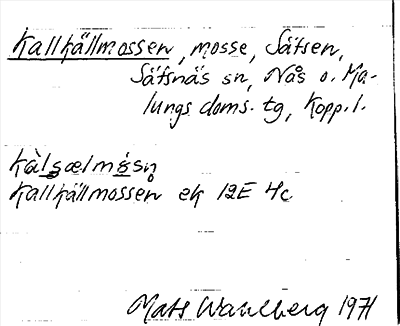 Kallkällmossen, mosse, Säfsen,
Säfsnäs sn, Nås o. Ma-
lungs doms. tg, Kopp. l.
Kallkällmossen ek 12E 4c
Mats Wahlberg 1971